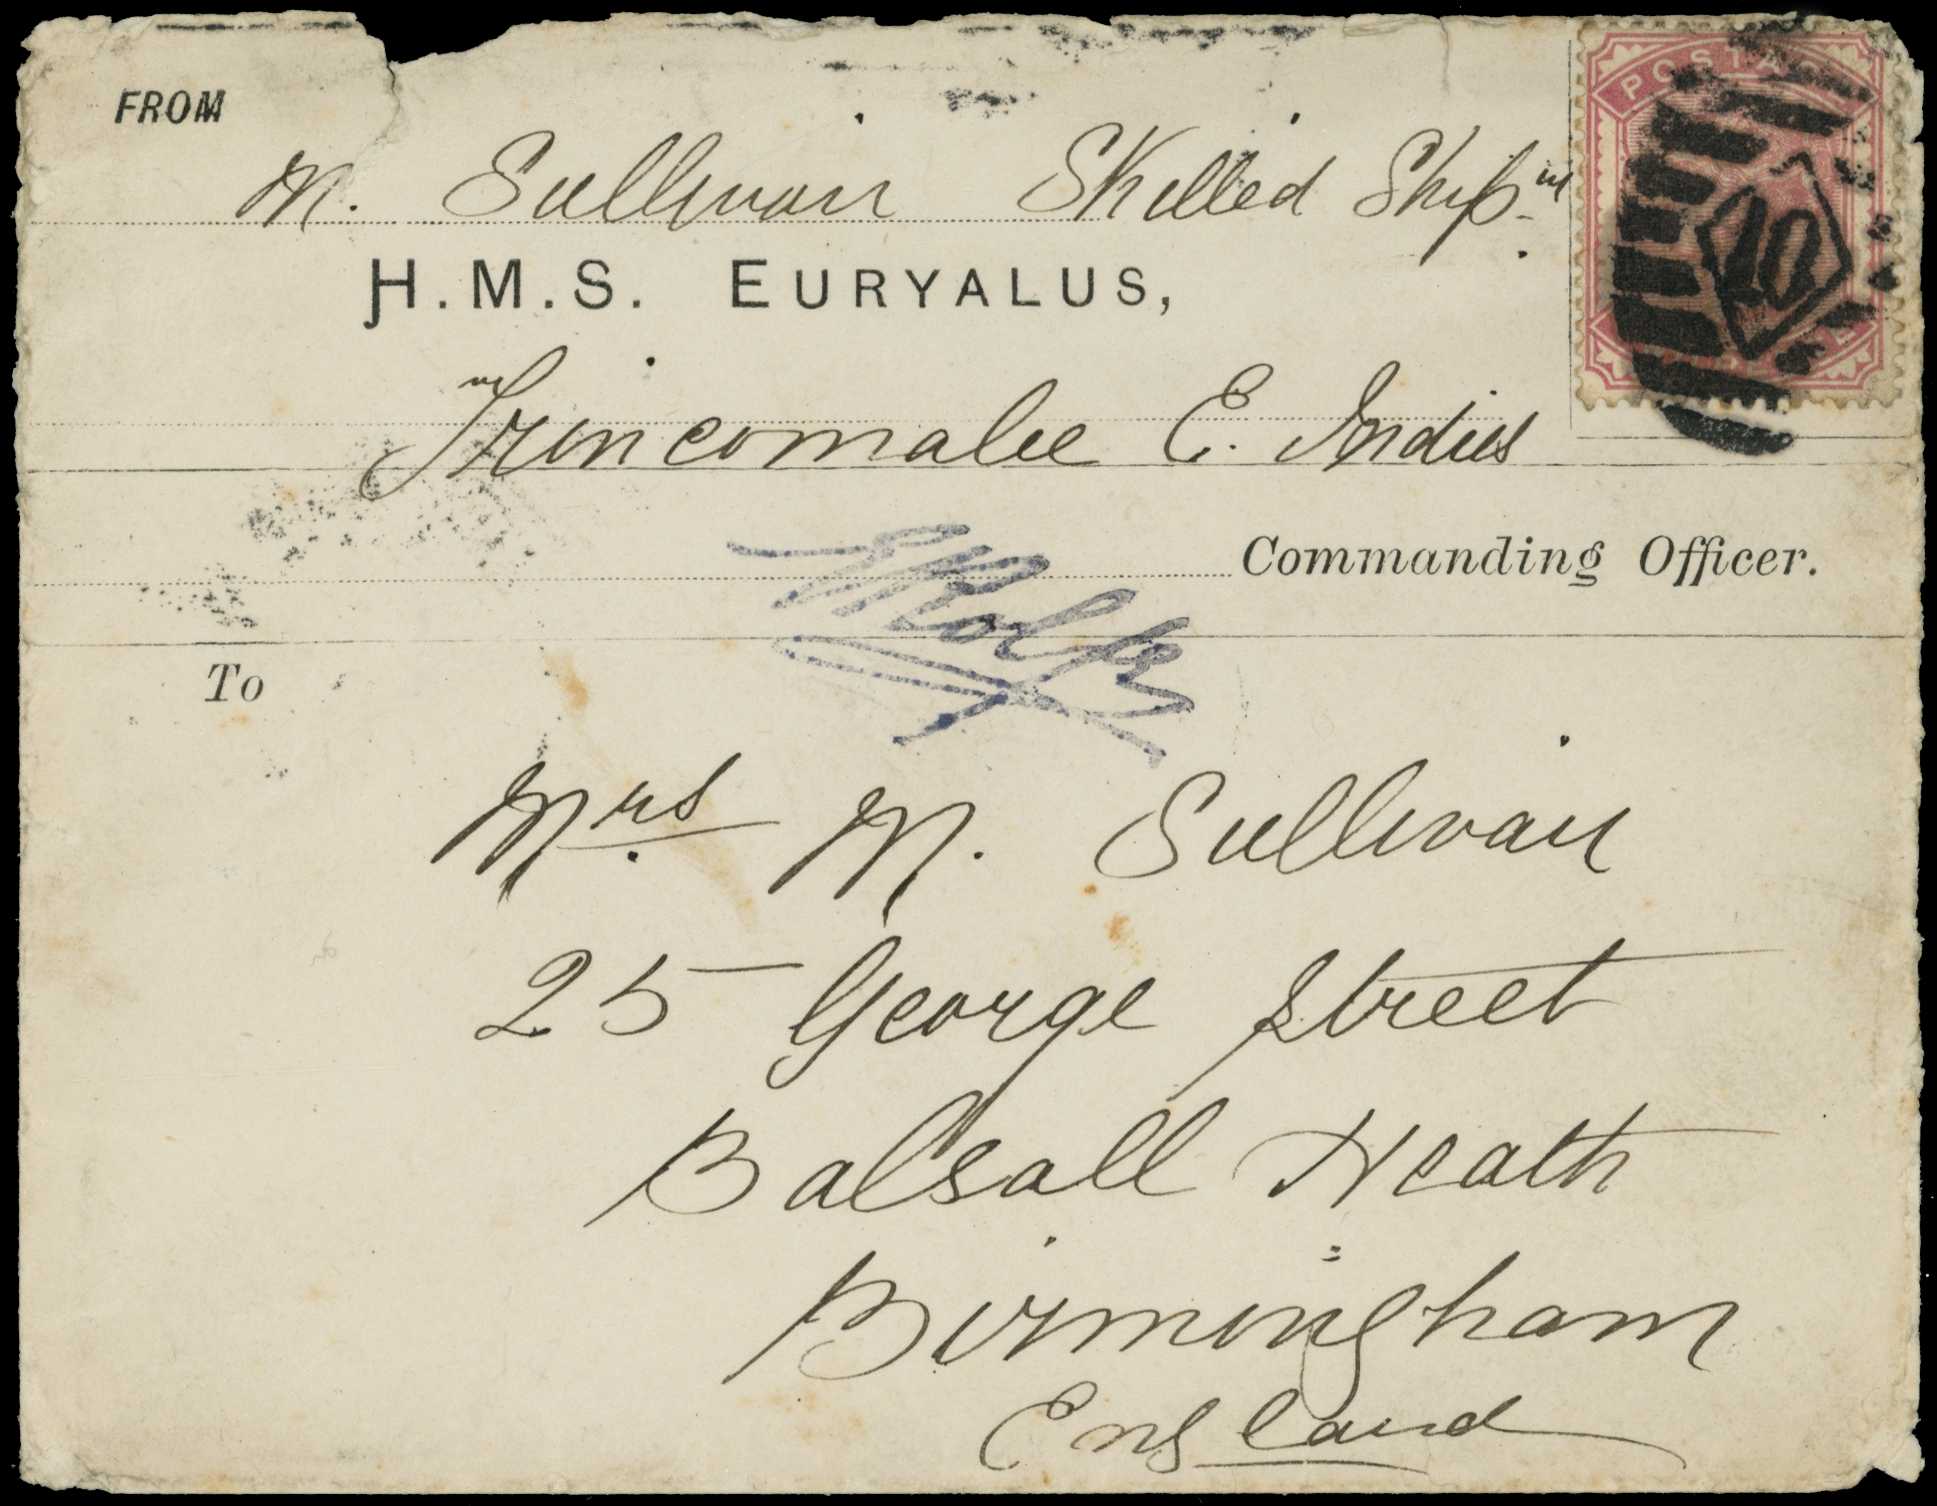 POSTAG
10
FROM
M. Sullivan Skilled Ship.
H.M.S. EURYALUS,
Trincomalee E. Indies
Commanding Officer.
To
Mrs. M. Sullivan
25 George Street
Balsall Heath
Birmingham
England